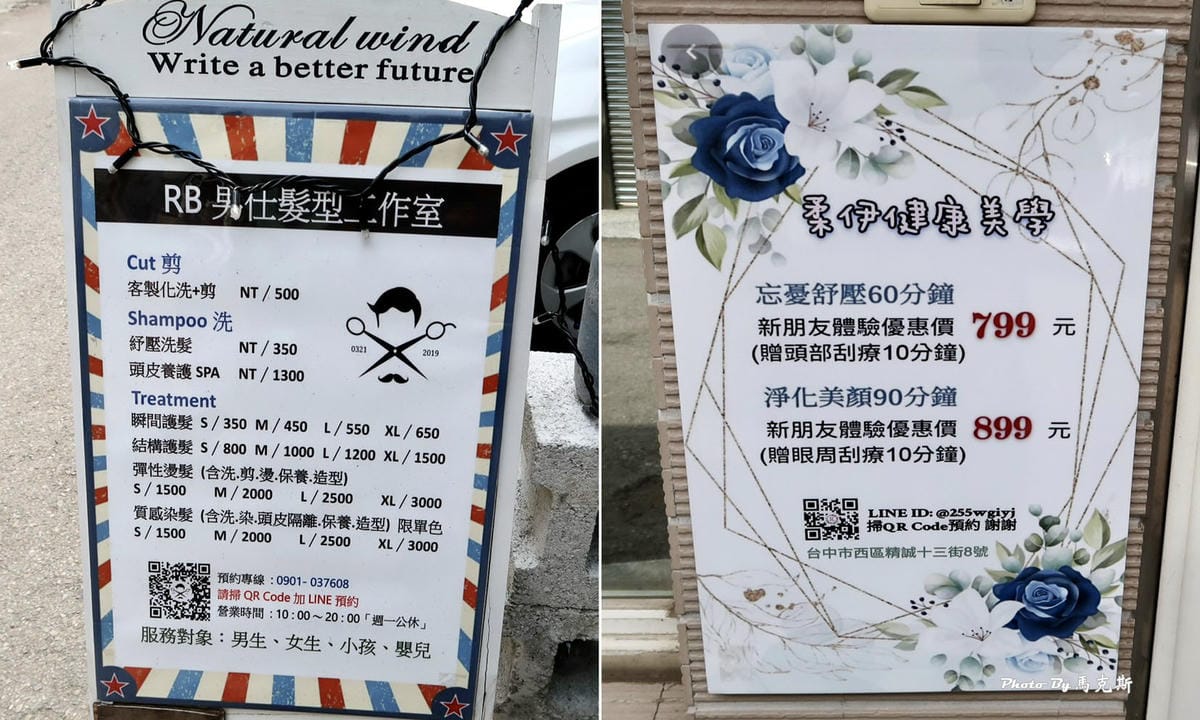 Natural wind
Write a better future
RB 男仕髮型工作室
Cut 剪
客製化洗+剪 NT / 500
Shampoo 洗
紓壓洗髮 NT / 350
頭皮養護 SPA NT / 1300
0321 2019
Treatment
瞬間護髮 S / 350 M / 450 L / 550 XL / 650
結構護髮 S / 800 M / 1000 L / 1200 XL / 1500
彈性燙髮 (含洗.剪.燙.保養.造型)
S / 1500 M / 2000 L / 2500 XL / 3000
質感染髮 (含洗.染.頭皮隔離.保養.造型) 限單色
S / 1500 M / 2000 L / 2500 XL / 3000
預約專線：0901- 037608
請掃 QR Code 加 LINE 預約
營業時間：10：00～20：00「週一公休」
服務對象：男生、女生、小孩、嬰兒
柔伊健康美學
忘憂舒壓60分鐘
新朋友體驗優惠價 799 元
(贈頭部刮療10分鐘)
淨化美顏90分鐘
新朋友體驗優惠價 899 元
(贈眼周刮療10分鐘)
LINE ID: @255wgiyj
掃QR Code預約 謝謝
台中市西區精誠十三街8號
Photo By 馬克斯